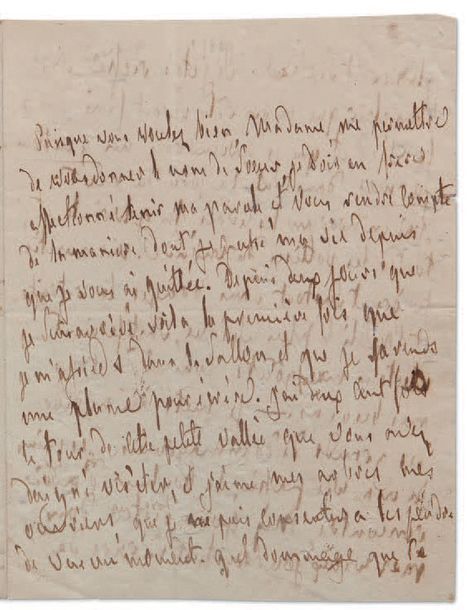 Puisque vous voulez bien, Madame, me permettre
de vous donner le nom de Soeur, je dois en frère
affectionné tenir ma parole et vous rendre compte
de la manière dont je passe ma vie depuis
que je vous ai quittée. Depuis deux jours que
je suis arrivé, voilà la première fois que
je m'assieds dans la vallée, et que je prends
une plume pour écrire. J'ai deux cent fois
le tour de cette petite vallée que vous avez
daigné visiter, et j'aime mes arbres
que je ne puis consentir à les perdre
de vue un moment. quel dommage que la